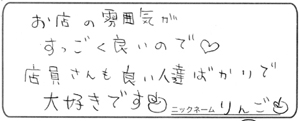 お店の雰囲気が
すっごく良いので♡
店員さんも良い人達ばかりで
大好きです
ニックネーム りんご